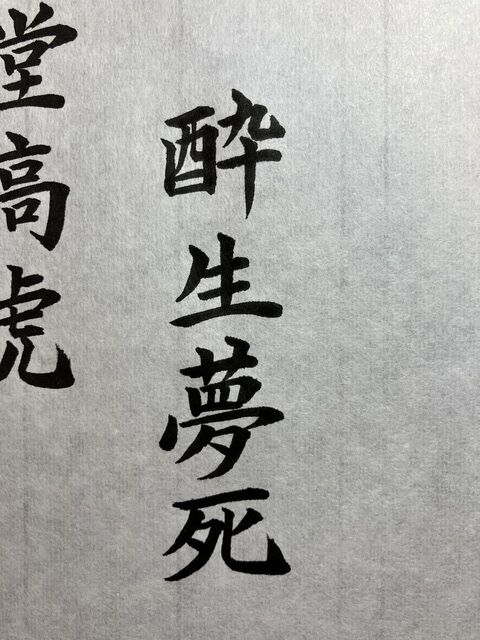 酔生夢死
堂高虎